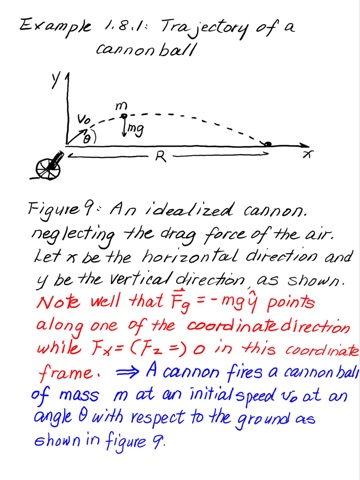 Example 1.8.1: Trajectory of a
cannonball
y
v₀
m
θ
mg
R
x
Figure 9: An idealized cannon.
neglecting the drag force of the air.
Let x be the horizontal direction and
y be the vertical direction, as shown.
Note well that F⃗g = -mgŷ points
along one of the coordinate direction
while Fx = (Fz =) 0 in this coordinate
frame. ⇒ A cannon fires a cannon ball
of mass m at an initial speed v₀ at an
angle θ with respect to the ground as
shown in figure 9.